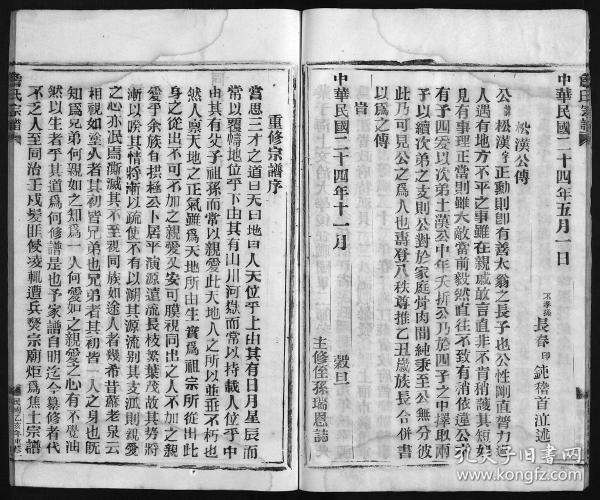 中華民國二十四年五月一日
不孝孫長春印鈍稽首泣述
松漢公傳
公諱松漢字正勳則卽有善太翁之長子也公性剛直膂力過
人遇有地方不平之事雖在親戚敢言直非不肯稍護其短如
見有事理正當則雖大敵當前毅然直往不致有稍依違公
有子四爰以次弟土漢公中年夭折公乃於四子之中擇取兩
子以續次弟之支則公對於家庭骨肉間純秉至公無分彼
此乃可見公之爲人也壽登八秩尊推乙丑歲族長合併書
以爲之傳
旹
中華民國二十四年十一月 穀旦
主修侄孫瑞恩誌
重修宗譜序
嘗思三才之道曰天曰地曰人天位乎上由其有日月星辰而
常以覆幬地位乎下由其有山川河嶽而常以持載人位乎中
由其有父子祖孫而常以親愛此天地人之所以並垂不朽也
然人稟天地之正氣雖爲天地所由生實爲祖宗所從出此
身之從出不可不加之親愛又安可膜視同出之人不加之親
愛乎余族自拱極公卜居平演源遠流長枝繁葉茂故其勢將
漸以暌其情將漸以疏使不有以溯其源流別其支派則親愛
之心亦泯焉漸滅其不至視同族如途人者幾希昔蘇老泉云
相視如塗人者其初皆兄弟也兄弟者其初皆一人之身也旣
知爲兄弟何親如之知爲一人何愛如之親愛之心有不覺油
然以生者乎其道爲何修譜是也予家譜自明迄今纂修者代
不乏人至同治壬戌髮匪侵凌輒遭兵燹宗廟炬爲焦土宗譜
詹氏宗譜
民國乙亥年重修
孔夫子旧书网
www.kongfz.com